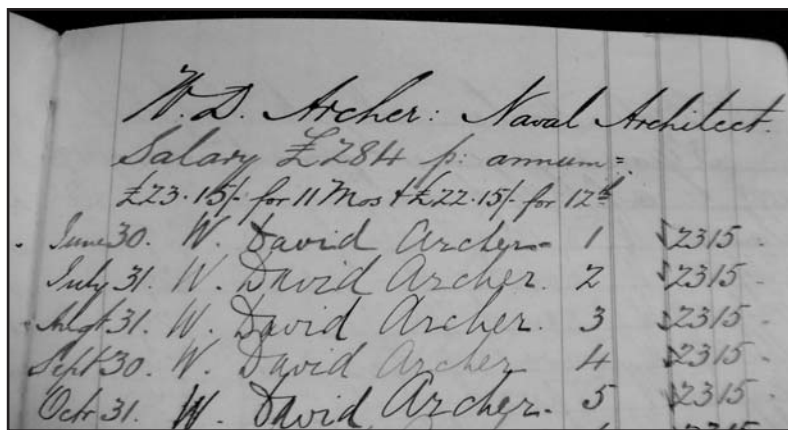 W. D. Archer: Naval Architect.
Salary £284 p: annum =
£23.15/- for 11 Mos & £22.15/- for 12th
June 30. W. David Archer - 1 √2315 -
July 31. W. David Archer. 2 √2315 -
Augt 31. W. David Archer. 3 √2315 -
Sept 30. W. David Archer 4 √2315 -
Octr 31. W. David Archer - 5 √2315 -